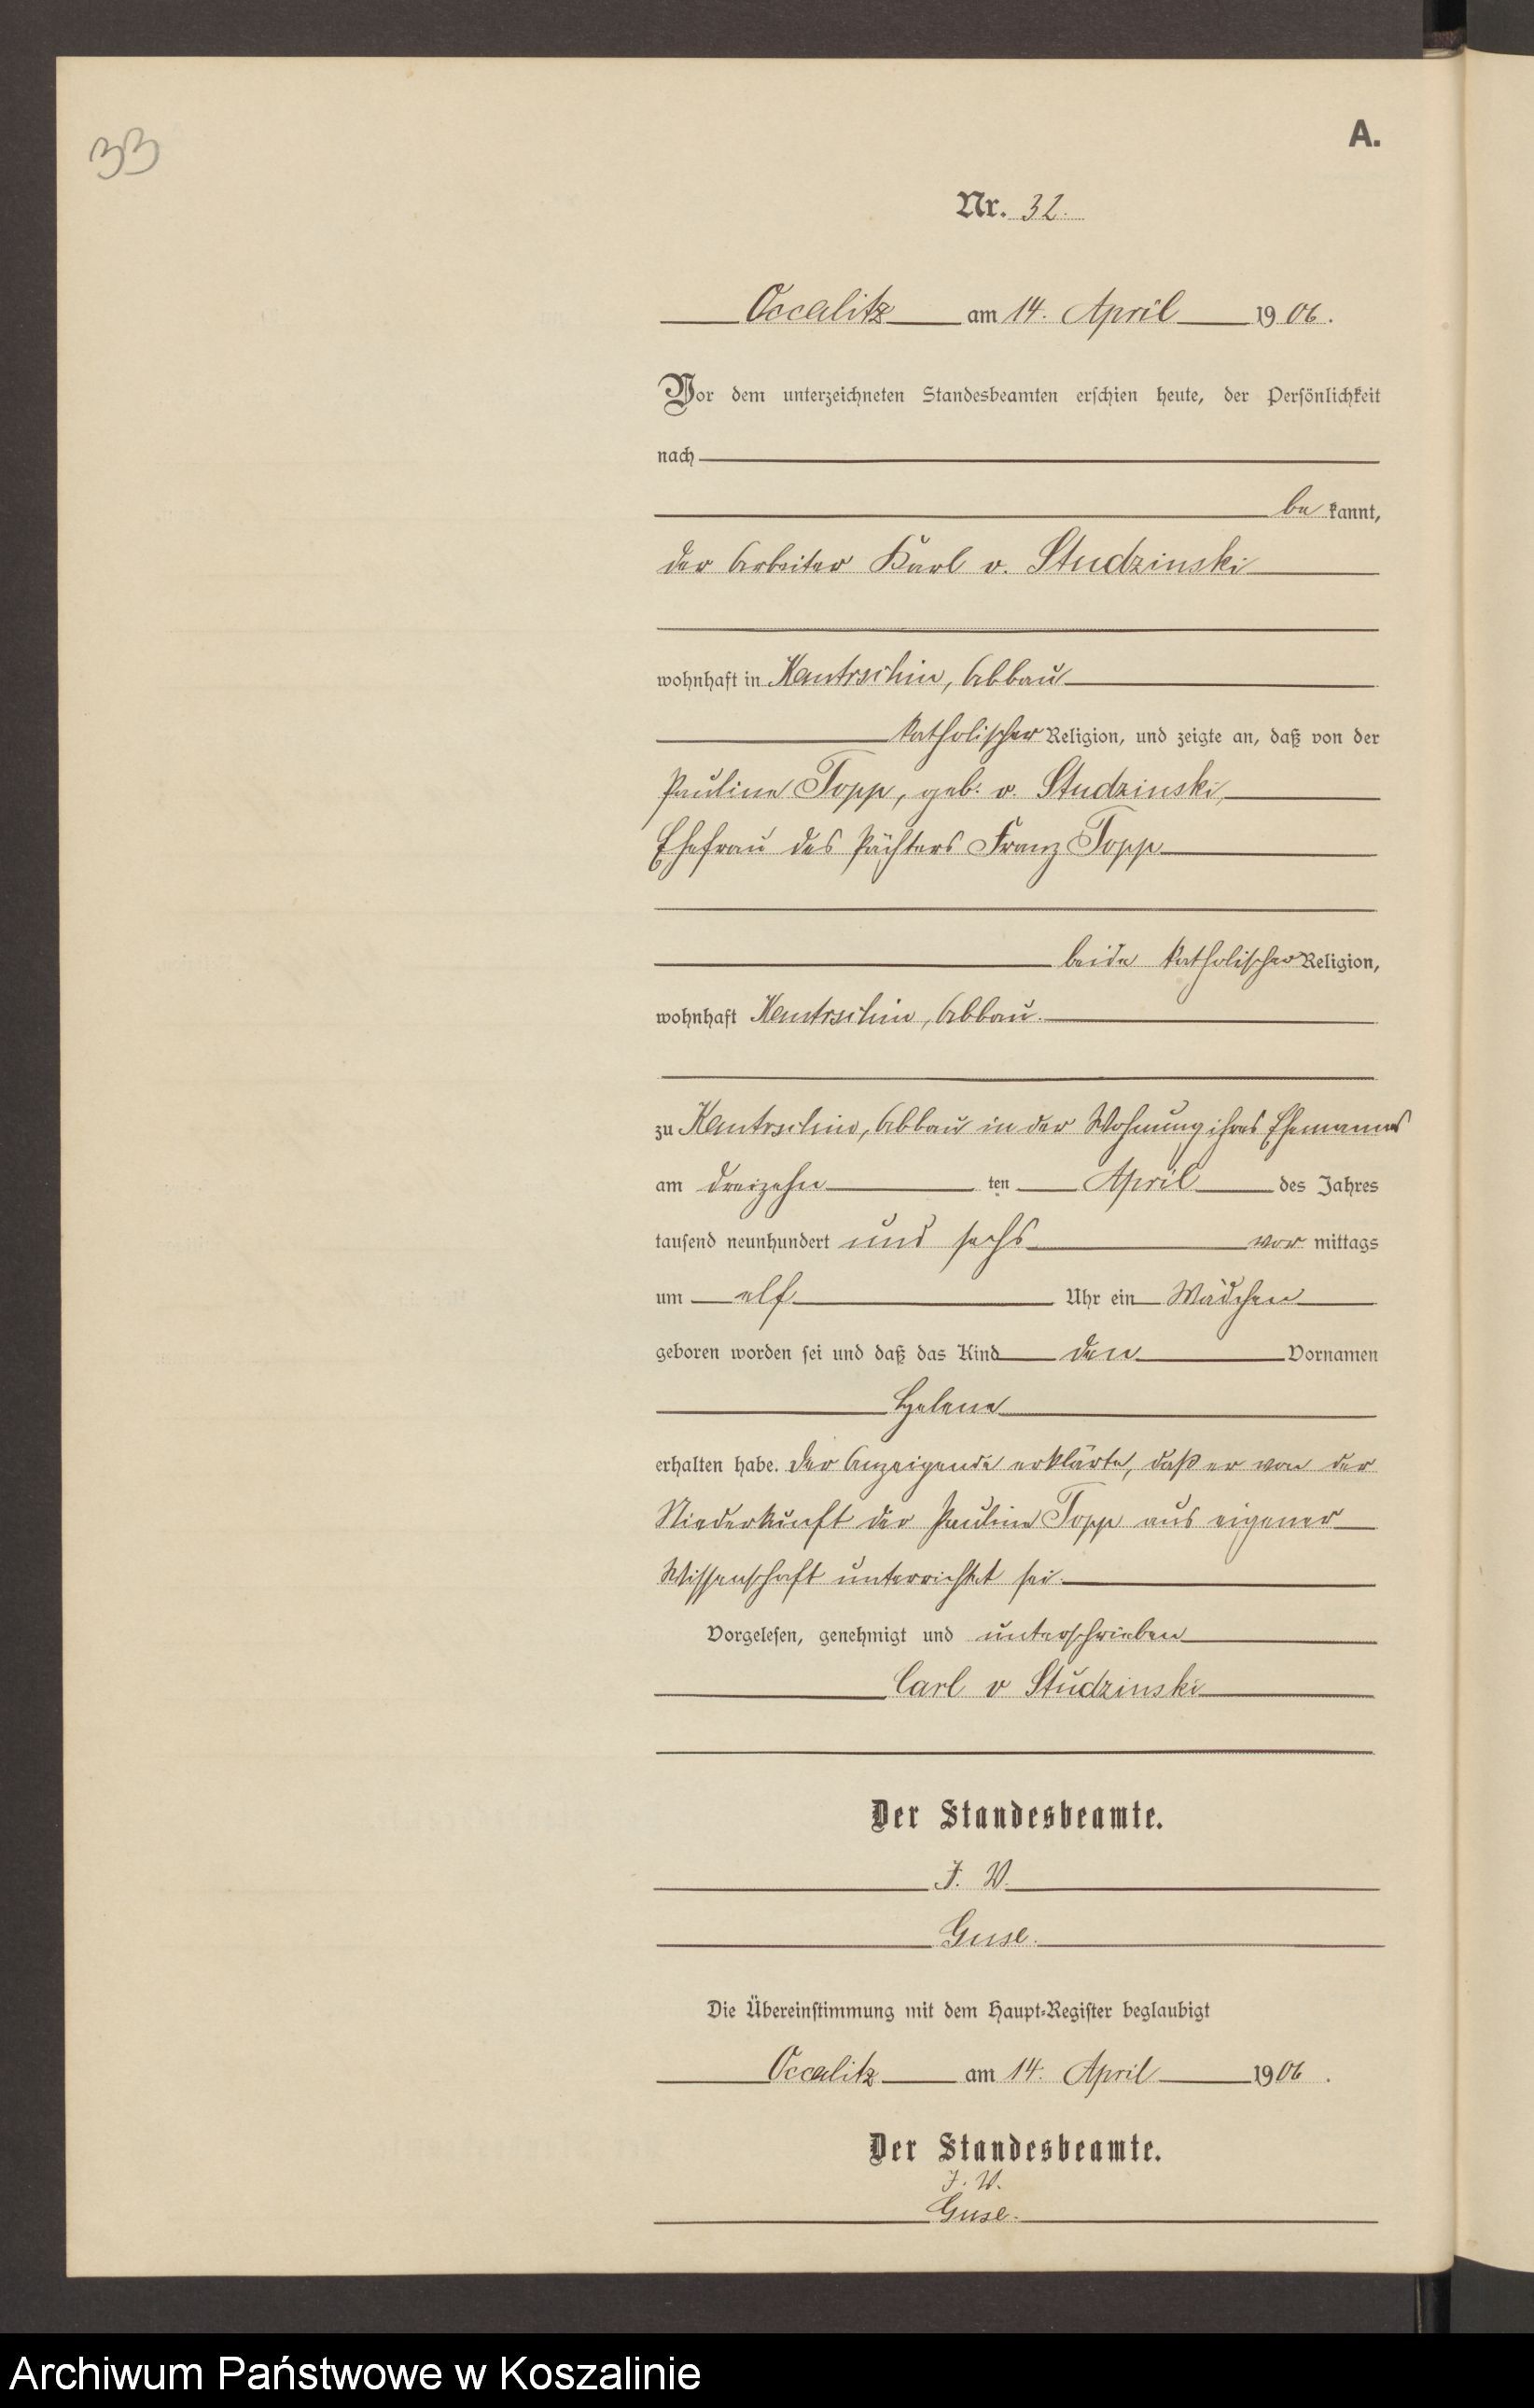 33
A.
Nr. 32.
Occalitz am 14. April 1906.
Vor dem unterzeichneten Standesbeamten erschien heute, der Persönlichkeit
nach
be kannt,
der Arbeiter Karl v. Studzinski
wohnhaft in Kantrschin, Abbau
katholischer Religion, und zeigte an, daß von der
Pauline Topp, geb. v. Studzinski,
Ehefrau des Pächters Franz Topp
beide katholischer Religion,
wohnhaft Kantrschin, Abbau.
zu Kantrschin, Abbau in der Wohnung ihres Ehemannes
am dreizehn ten April des Jahres
tausend neunhundert und sechs vor mittags
um elf Uhr ein Mädchen
geboren worden sei und daß das Kind den Vornamen
Helene
erhalten habe. Der Anzeigende erklärte, daß er von der
Niederkunft der Pauline Topp aus eigener
Wissenschaft unterrichtet sei.
Vorgelesen, genehmigt und unterschrieben
Carl v Studzinski
Der Standesbeamte.
J. V.
Guse.
Die Übereinstimmung mit dem Haupt-Register beglaubigt
Occalitz am 14. April 1906.
Der Standesbeamte.
J. V.
Guse.
Archiwum Państwowe w Koszalinie